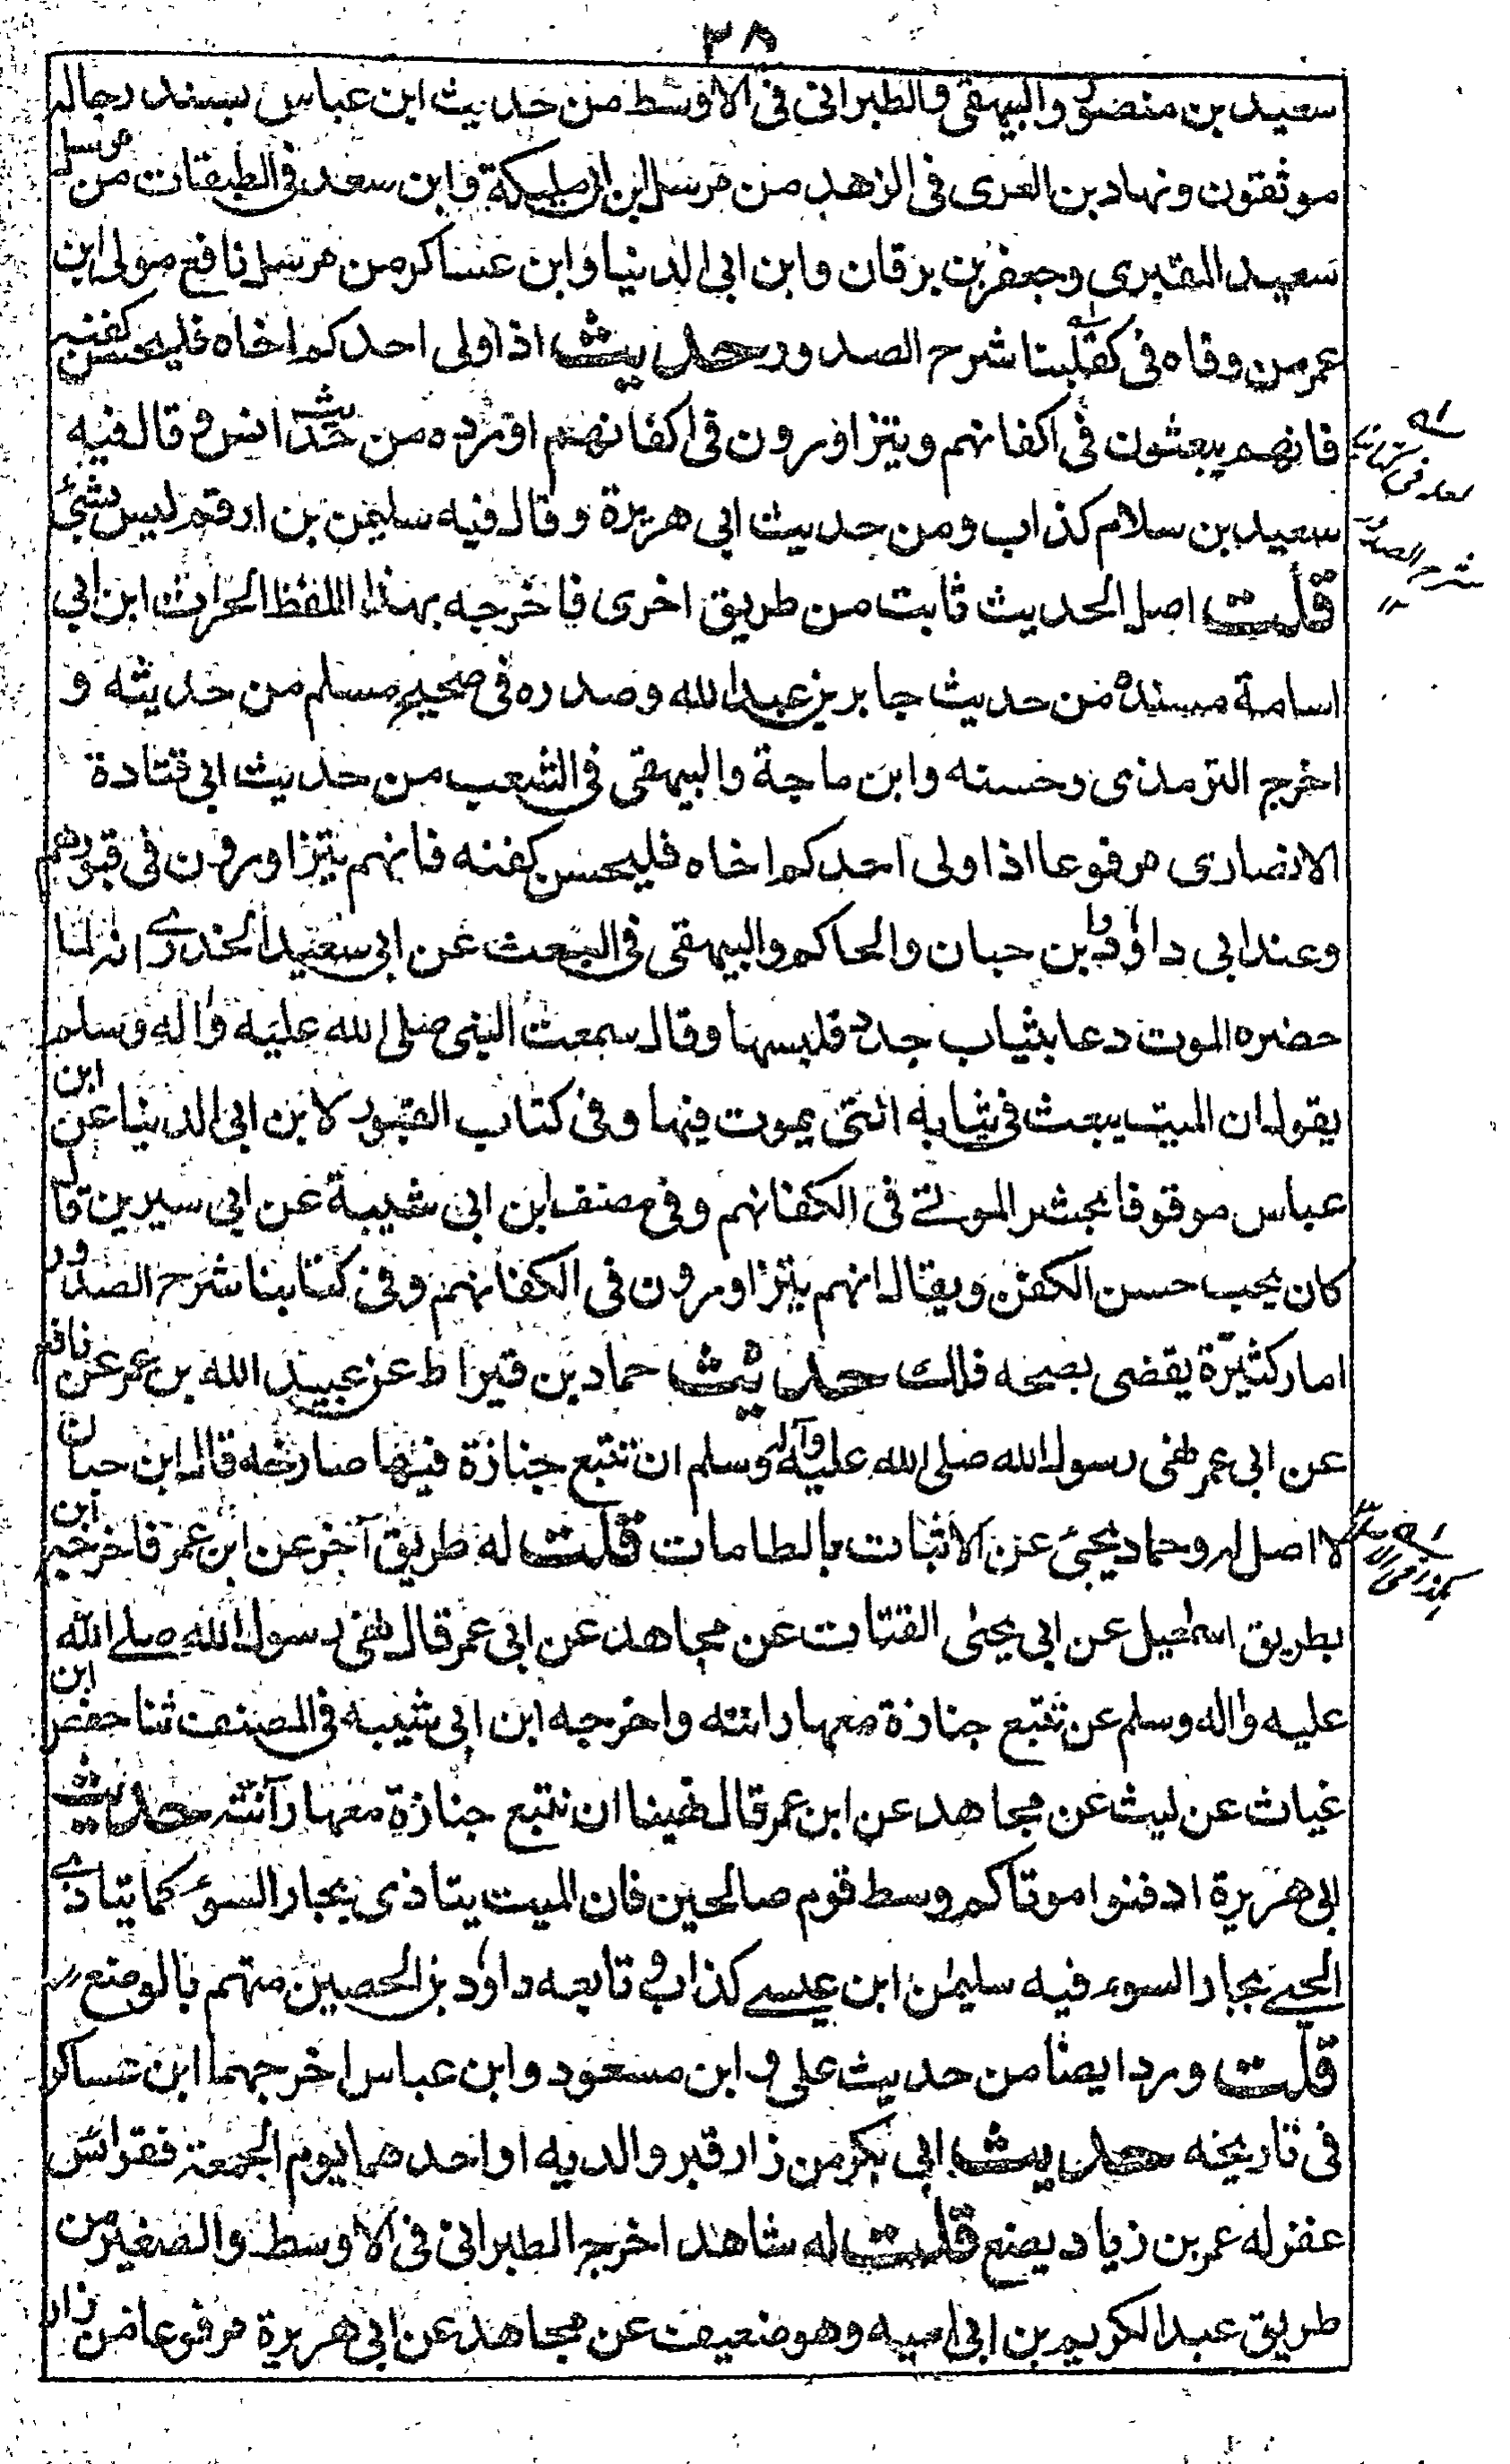 ٣٨
سعيد بن منصور والبيهقى والطبرانى فى الاوسط من حديث ابن عباس بسند رجاله
موثقون ونهاد بن العرى فى الزهد من مرسل ابن ابى مليكة وابن سعد فى الطبقات من مرسل
سعيد المقبرى وجعفر بن برقان وابن ابى الدنيا وابن عساكر من مرسل نافع مولى ابن
عمر من وفاه فى كتابنا شرح الصدور حديث اذا ولى احدكم اخاه فليحسن كفنه
فانهم يبعثون فى اكفانهم ويتزاورون فى اكفانهم اورده من حديث انس وقال فيه
سعيد بن سلام كذاب ومن حديث ابى هريرة وقال فيه سليمن بن ارقم ليس بشئ
قلت اصل الحديث ثابت من طريق اخرى فاخرجه بهذا اللفظ الحراث ابن ابى
اسامة مسنده من حديث جابر بن عبد الله وصدره فى صحيح مسلم من حديثه و
اخرج الترمذى وحسنه وابن ماجة والبيهقى فى الشعب من حديث ابى قتادة
الانصارى مرفوعا اذا ولى احدكم اخاه فليحسن كفنه فانهم يتزاورون فى قبورهم
وعند ابى داؤد وابن حبان والحاكم والبيهقى فى البعث عن ابى سعيد الخدرى انه لما
حضره الموت دعا بثياب جدد فلبسها وقال سمعت النبى صلى الله عليه واله وسلم
يقول ان الميت يبعث فى ثيابه التى يموت فيها وفى كتاب القبور لابن ابى الدنيا عن ابن
عباس موقوفا يحشر الموتى فى الكفانهم وفى مصنف ابن ابى شيبة عن ابى سيرين قال
كان يحب حسن الكفن ويقال انهم يتزاورون فى الكفانهم وفى كتابنا شرح الصدور
امار كثيرة يقضى بصحه فلك حديث حماد بن قيراط عن عبيد الله بن عمر عن نافع
عن ابى عمر نهى رسول الله صلى الله عليه وآله وسلم ان تتبع جنازة فيها صارخه قال ابن حبان
لا اصل له وحماد يجئ عن الاثبات بالطامات قلت له طريق آخر عن ابن عمر فاخرجه ابن
بطريق اسمعيل عن ابى يحيى القتات عن مجاهد عن ابى عمر قال نهى رسول الله صلے الله
عليه واله وسلم عن تتبع جنازة معها رانته واخرجه ابن ابى شيبه فى المصنف ثنا حفص ابن
غياث عن ليث عن مجاهد عن ابن عمر قال نهينا ان نتبع جنازة معها رآنته حديث
ابى هريرة ادفنوا موتاكم وسط قوم صالحين فان الميت يتاذى بجار السوء كما يتاذى
الحى بجار السوء فيه سليمن ابن عيسے كذاب وتابعه داؤد بن الحصين متهم بالوضع
قلت ورد ايضا من حديث على و ابن مسعود وابن عباس اخرجهما ابن عساكر
فى تاريخه حديث ابى بكر من زار قبر والديه او احدهما يوم الجمعة فقرا يس
غفر له عمر بن زياد يضع قلت له شاهد اخرجه الطبرانى فى الاوسط والصغير من
طريق عبد الكريم بن ابى اميه وهو ضعيف عن مجاهد عن ابى هريرة مرفوعا من زار